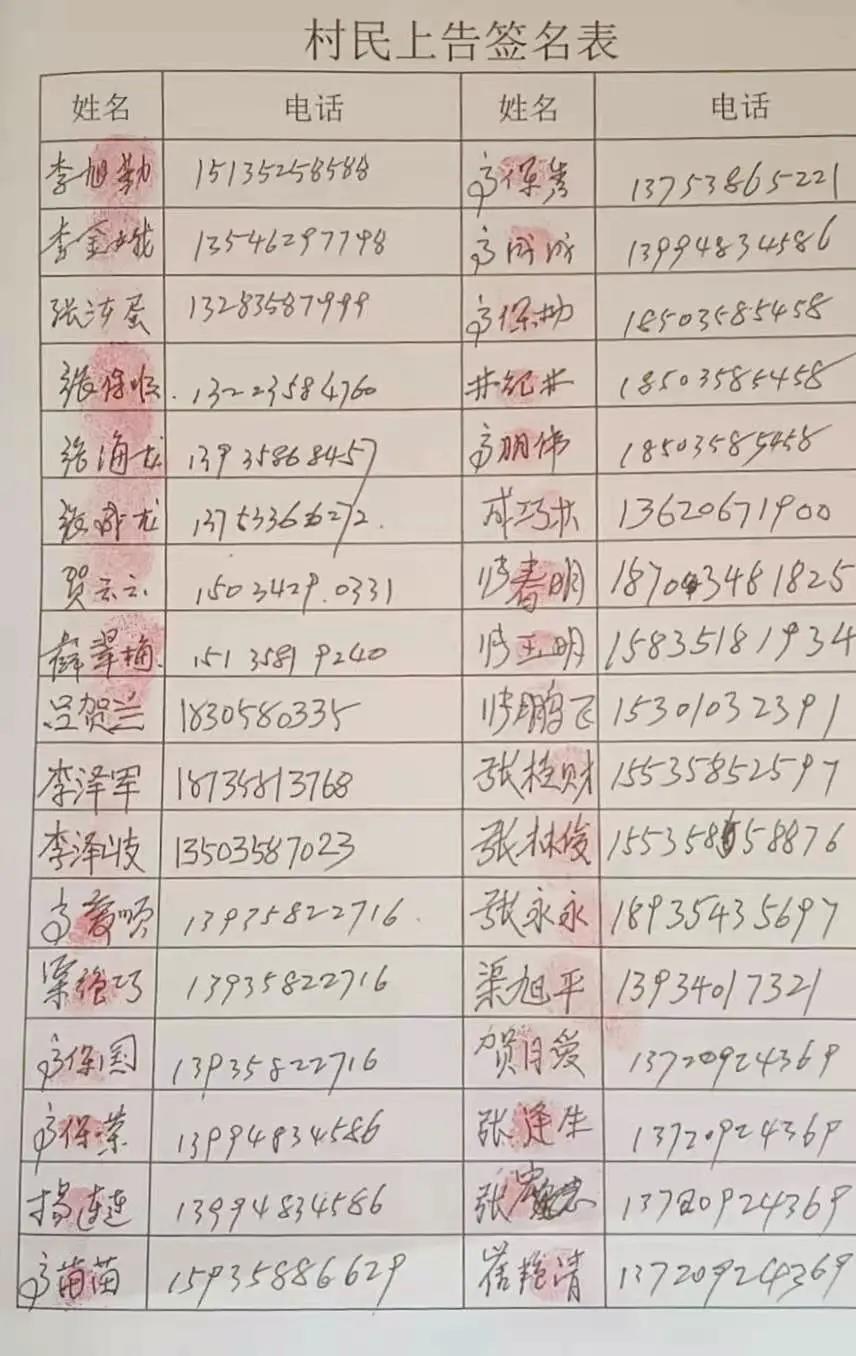 村民上告签名表
姓名 电话 姓名 电话
李旭勤 15135258588 高保秀 13753865221
李金娥 13546297798 高成成 13994834586
张海蛋 13283587999 高保 18503585458
张保顺 13223584760 18503585458
张海龙 13935868457 高明伟 18503585458
张成龙 272 成巧 13620671900
贺云云 15034290331 春明 3481825
薛翠梅 15135819240 玉明 15835181934
吕贺兰 1830580335 鹏飞 15301032391
李泽军 18735813768 张桂财 15535852597
李泽岐 13503587023 张林俊 58876
高爱 13935822716 张永永 18935435697
巧 13935822716 渠旭平 13934017321
高保国 13935822716 贺月爱 13720924369
高保荣 13994834586 张逢生 13720924369
杨连连 13994834586 张 13720924369
高苗苗 15935886629 崔艳清 13720924369